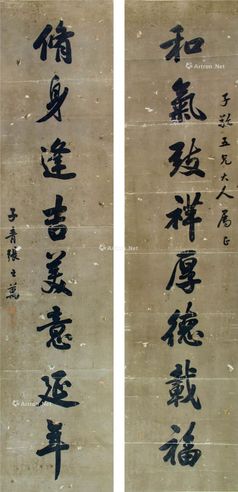 和氣致祥厚德載福
子□五兄大人屬正
脩身逢吉美意延年
子青張之萬
Artron.Net